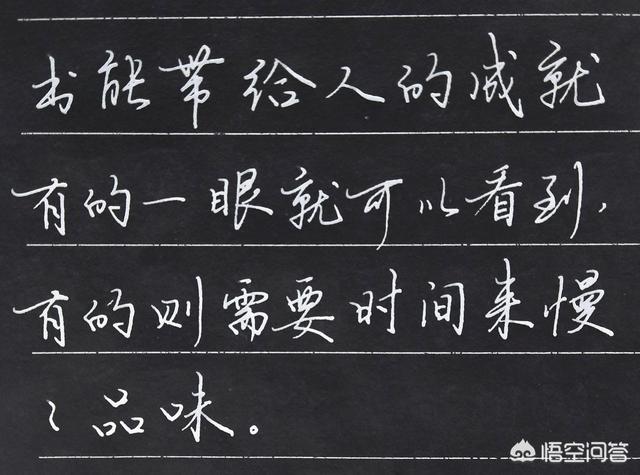 书能带给人的成就
有的一眼就可以看到,
有的则需要时间来慢
々品味。
悟空问答